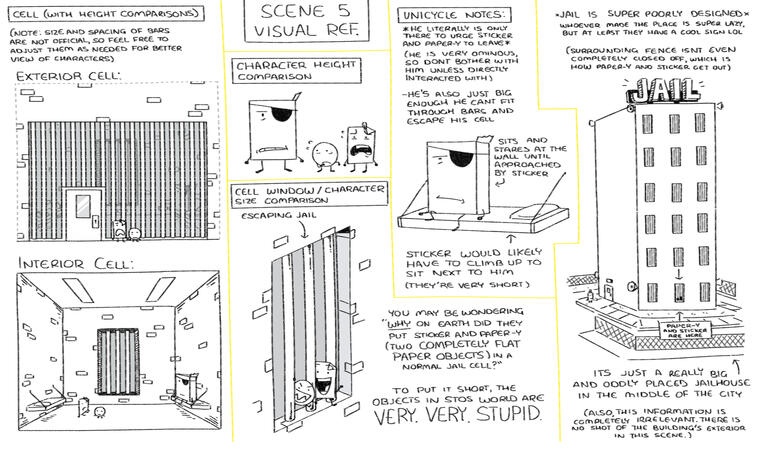 CELL (WITH HEIGHT COMPARISONS)
(NOTE: SIZE AND SPACING OF BARS
ARE NOT OFFICIAL, SO FEEL FREE TO
ADJUST THEM AS NEEDED FOR BETTER
VIEW OF CHARACTERS)
EXTERIOR CELL:
INTERIOR CELL:
SCENE 5
VISUAL REF.
CHARACTER HEIGHT
COMPARISON
CELL WINDOW/CHARACTER
SIZE COMPARISON
ESCAPING JAIL
UNICYCLE NOTES:
*HE LITERALLY IS ONLY
THERE TO URGE STICKER
AND PAPER-Y TO LEAVE*
(HE IS VERY OMINOUS,
SO DONT BOTHER WITH
HIM UNLESS DIRECTLY
INTERACTED WITH)
-HE'S ALSO JUST BIG
ENOUGH HE CANT FIT
THROUGH BARS AND
ESCAPE HIS CELL
SITS AND
STARES AT THE
WALL UNTIL
APPROACHED
BY STICKER
STICKER WOULD LIKELY
HAVE TO CLIMB UP TO
SIT NEXT TO HIM
(THEY'RE VERY SHORT)
YOU MAY BE WONDERING
"WHY ON EARTH DID THEY
PUT STICKER AND PAPER-Y
(TWO COMPLETELY FLAT
PAPER OBJECTS) IN A
NORMAL JAIL CELL?"
TO PUT IT SHORT, THE
OBJECTS IN STOS WORLD ARE
VERY. VERY. STUPID.
*JAIL IS SUPER POORLY DESIGNED*
WHOEVER MADE THE PLACE IS SUPER LAZY,
BUT AT LEAST THEY HAVE A COOL SIGN LOL
(SURROUNDING FENCE ISNT EVEN
COMPLETELY CLOSED OFF, WHICH IS
HOW PAPER-Y AND STICKER GET OUT)
JAIL
PAPER-Y
AND STICKER
ARE HERE
ITS JUST A REALLY BIG
AND ODDLY PLACED JAILHOUSE
IN THE MIDDLE OF THE CITY
(ALSO, THIS INFORMATION IS
COMPLETELY IRRELEVANT. THERE IS
NO SHOT OF THE BUILDING'S EXTERIOR
IN THIS SCENE.)